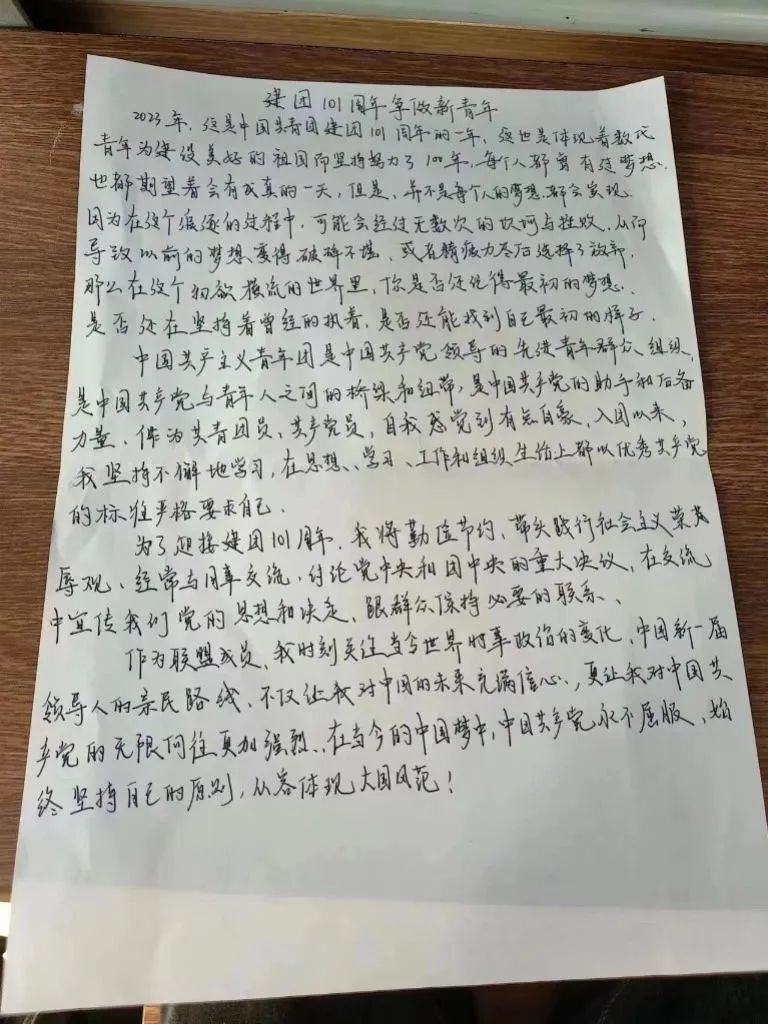 建团101周年争做新青年
2023年,这是中国共青团建团101周年的一年,这也是体现着数代
青年为建设美好的祖国而坚持努力了100年,每个人都曾有过梦想.
也都期望着会有成真的一天,但是,并不是每个人的梦想都会实现
因为在这个追逐的过程中,可能会经过无数次的坎坷与挫败,从而
导致以前的梦想变得破碎不堪,或者精疲力尽后选择了放弃.
那么在这个物欲横流的世界里,你是否还记得最初的梦想.
是否还在坚持着曾经的执着,是否还能找到自己最初的样子.
中国共产主义青年团是中国共产党领导的先进青年群众组织,
是中国共产党与青年人之间的桥梁和纽带,是中国共产党的助手和后备
力量、作为共青团员、共产党员,自我感觉到有点自豪、入团以来,
我坚持不懈地学习,在思想、学习、工作和组织生活上都以优秀共产党
的标准严格要求自己.
为了迎接建团101周年,我将勤俭节约、带头践行社会主义荣
辱观、经常与同事交流,讨论党中央和团中央的重大决议,在交流
中宣传我们党的思想和决定、跟群众保持必要的联系、
作为联盟成员,我时刻关注当今世界时事政治的变化、中国新一届
领导人的亲民路线、不仅让我对中国的未来充满信心,更让我对中国共
产党的无限向往更加强烈、在当今的中国梦中,中国共产党永不屈服、始
终坚持自己的原则,从容体现大国风范!